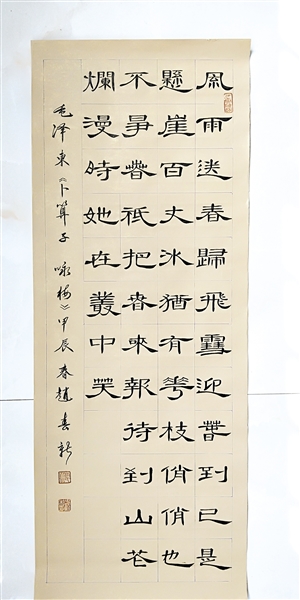 風雨送春歸飛雪迎春到已是
懸崖百丈冰猶有花枝俏俏也
不爭春祇把春來報待到山花
爛漫時她在叢中笑
毛泽東《卜算子 咏梅》甲辰春趙